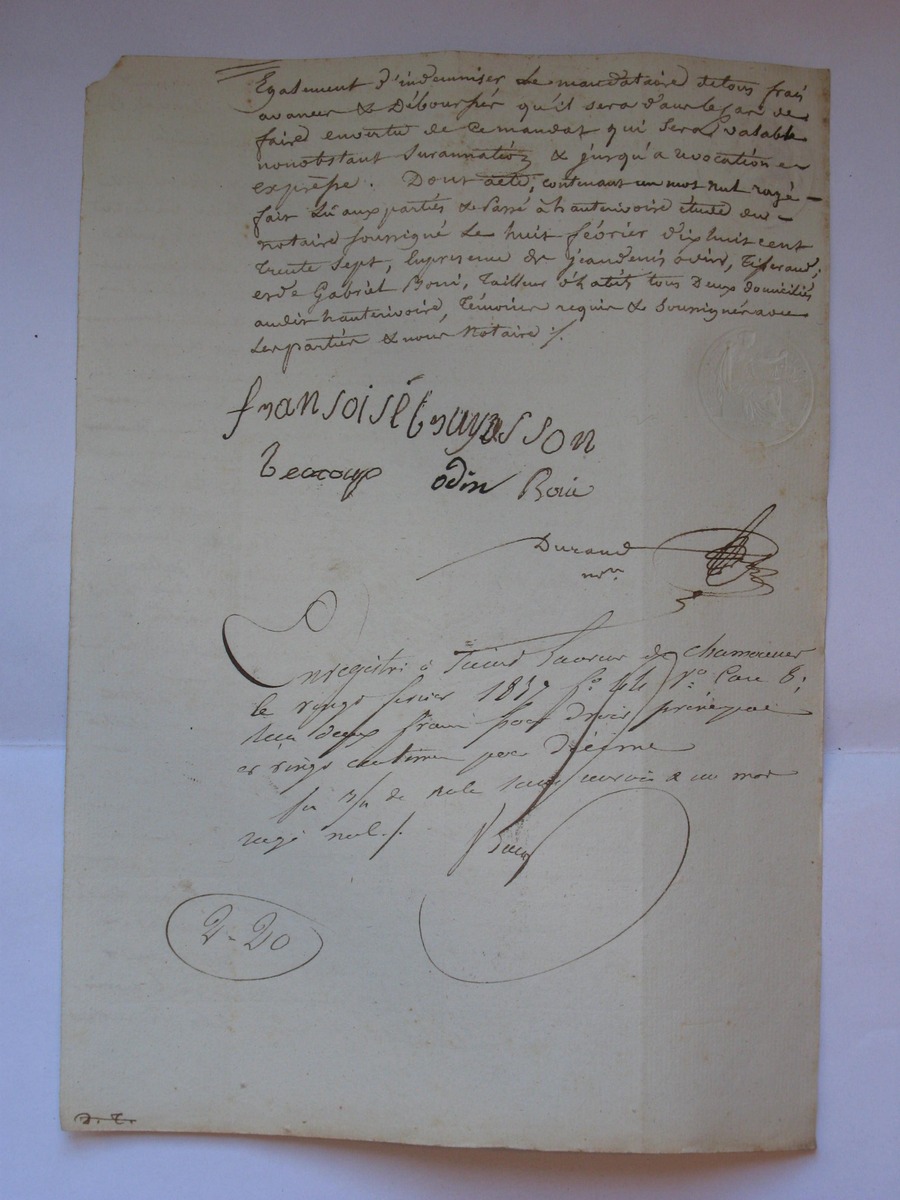 Egalement d'indemniser le mandataire detous frais
avances & Débourssés qu'il sera dans le cas de
faire envertu de ce mandat qui sera valable
nonobstant surannation & jusqu'a revocation
expresse. Dont acte, contenant un mot nul rayé
fait Lû aux parties & Passé à hauterivoire étude du
notaire soussigné Le huit février dixhuit cent
trente sept, En presence de jean denis odin, Tisserand,
et de Gabriel Boni, Tailleur d'habits tous Deux domiciliés
audit hauterivoire, Témoins requis & Soussignés avec
Les parties & nous Notaire ./.
fransoise
odin
Durand
nre
Enregistré à
le vingt février 1837 fo 44 Vo Case 8;
Reçu deux francs pour droit principal
et vingt centimes pour Décime
un mot
rayé nul ./.
2-20